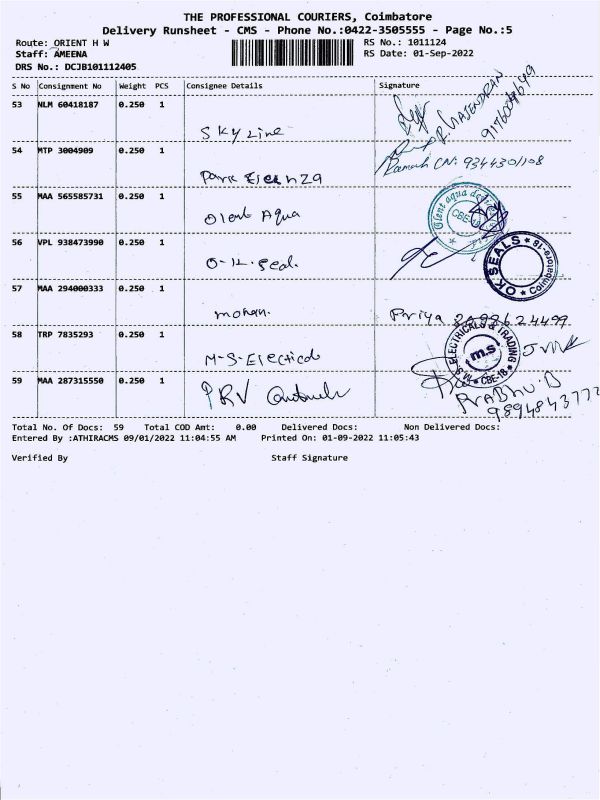 THE PROFESSIONAL COURIERS, Coimbatore
Delivery Runsheet - CMS - Phone No.:0422-3505555 - Page No.:5
Route: ORIENT H W RS No.: 1011124
Staff: AMEENA RS Date: 01-Sep-2022
DRS No.: DCJB101112405
S No Consignment No Weight PCS Consignee Details Signature
53 NLM 60418187 0.250 1
Skyline R. GAJENDRAN
54 MTP 3004909 0.250 1
Ramesh CN: 9344301108
Park
55 MAA 565585731 0.250 1
Olent Aqua Olent aqua CBE-18
56 VPL 938473990 0.250 1
O-K. Seal. OK SEALS Coimbatore-18
57 MAA 294000333 0.250 1
mohan. Priya
58 TRP 7835293 0.250 1
M-S-Electical M.S ELECTRICALS & TRADING m.s CBE-18
59 MAA 287315550 0.250 1
PRV Prabhu.B
9894843772
Total No. Of Docs: 59 Total COD Amt: 0.00 Delivered Docs: Non Delivered Docs:
Entered By :ATHIRACMS 09/01/2022 11:04:55 AM Printed On: 01-09-2022 11:05:43
Verified By Staff Signature